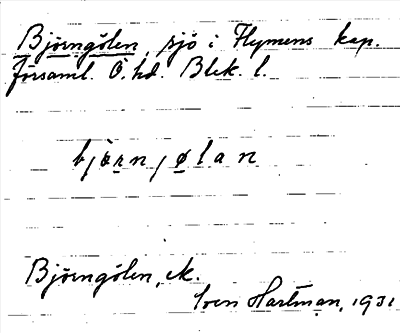 Björngölen, sjö i Flymens kap.
församl. Ö. hd. Blek. l.
björnjølan
Björngölen, ek.
Sven Hartman, 1931